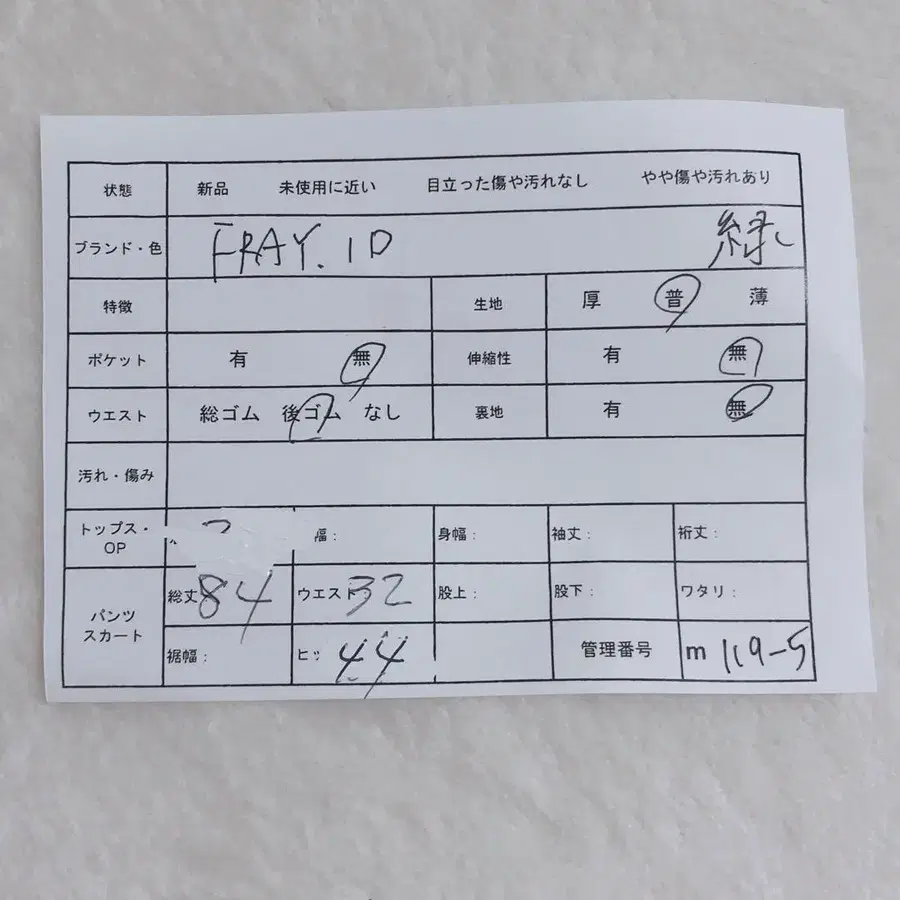 状態 新品 未使用に近い 目立った傷や汚れなし やや傷や汚れあり
ブランド・色 FRAY.ID 緑
特徴 生地 厚 普 薄
ポケット 有 無 伸縮性 有 無
ウエスト 総ゴム 後ゴム なし 裏地 有 無
汚れ・傷み
トップス・OP 幅: 身幅: 袖丈: 裄丈:
パンツ スカート 総丈 84 ウエスト 32 股上: 股下: ワタリ:
裾幅: ヒッ 44 管理番号 m 119-5